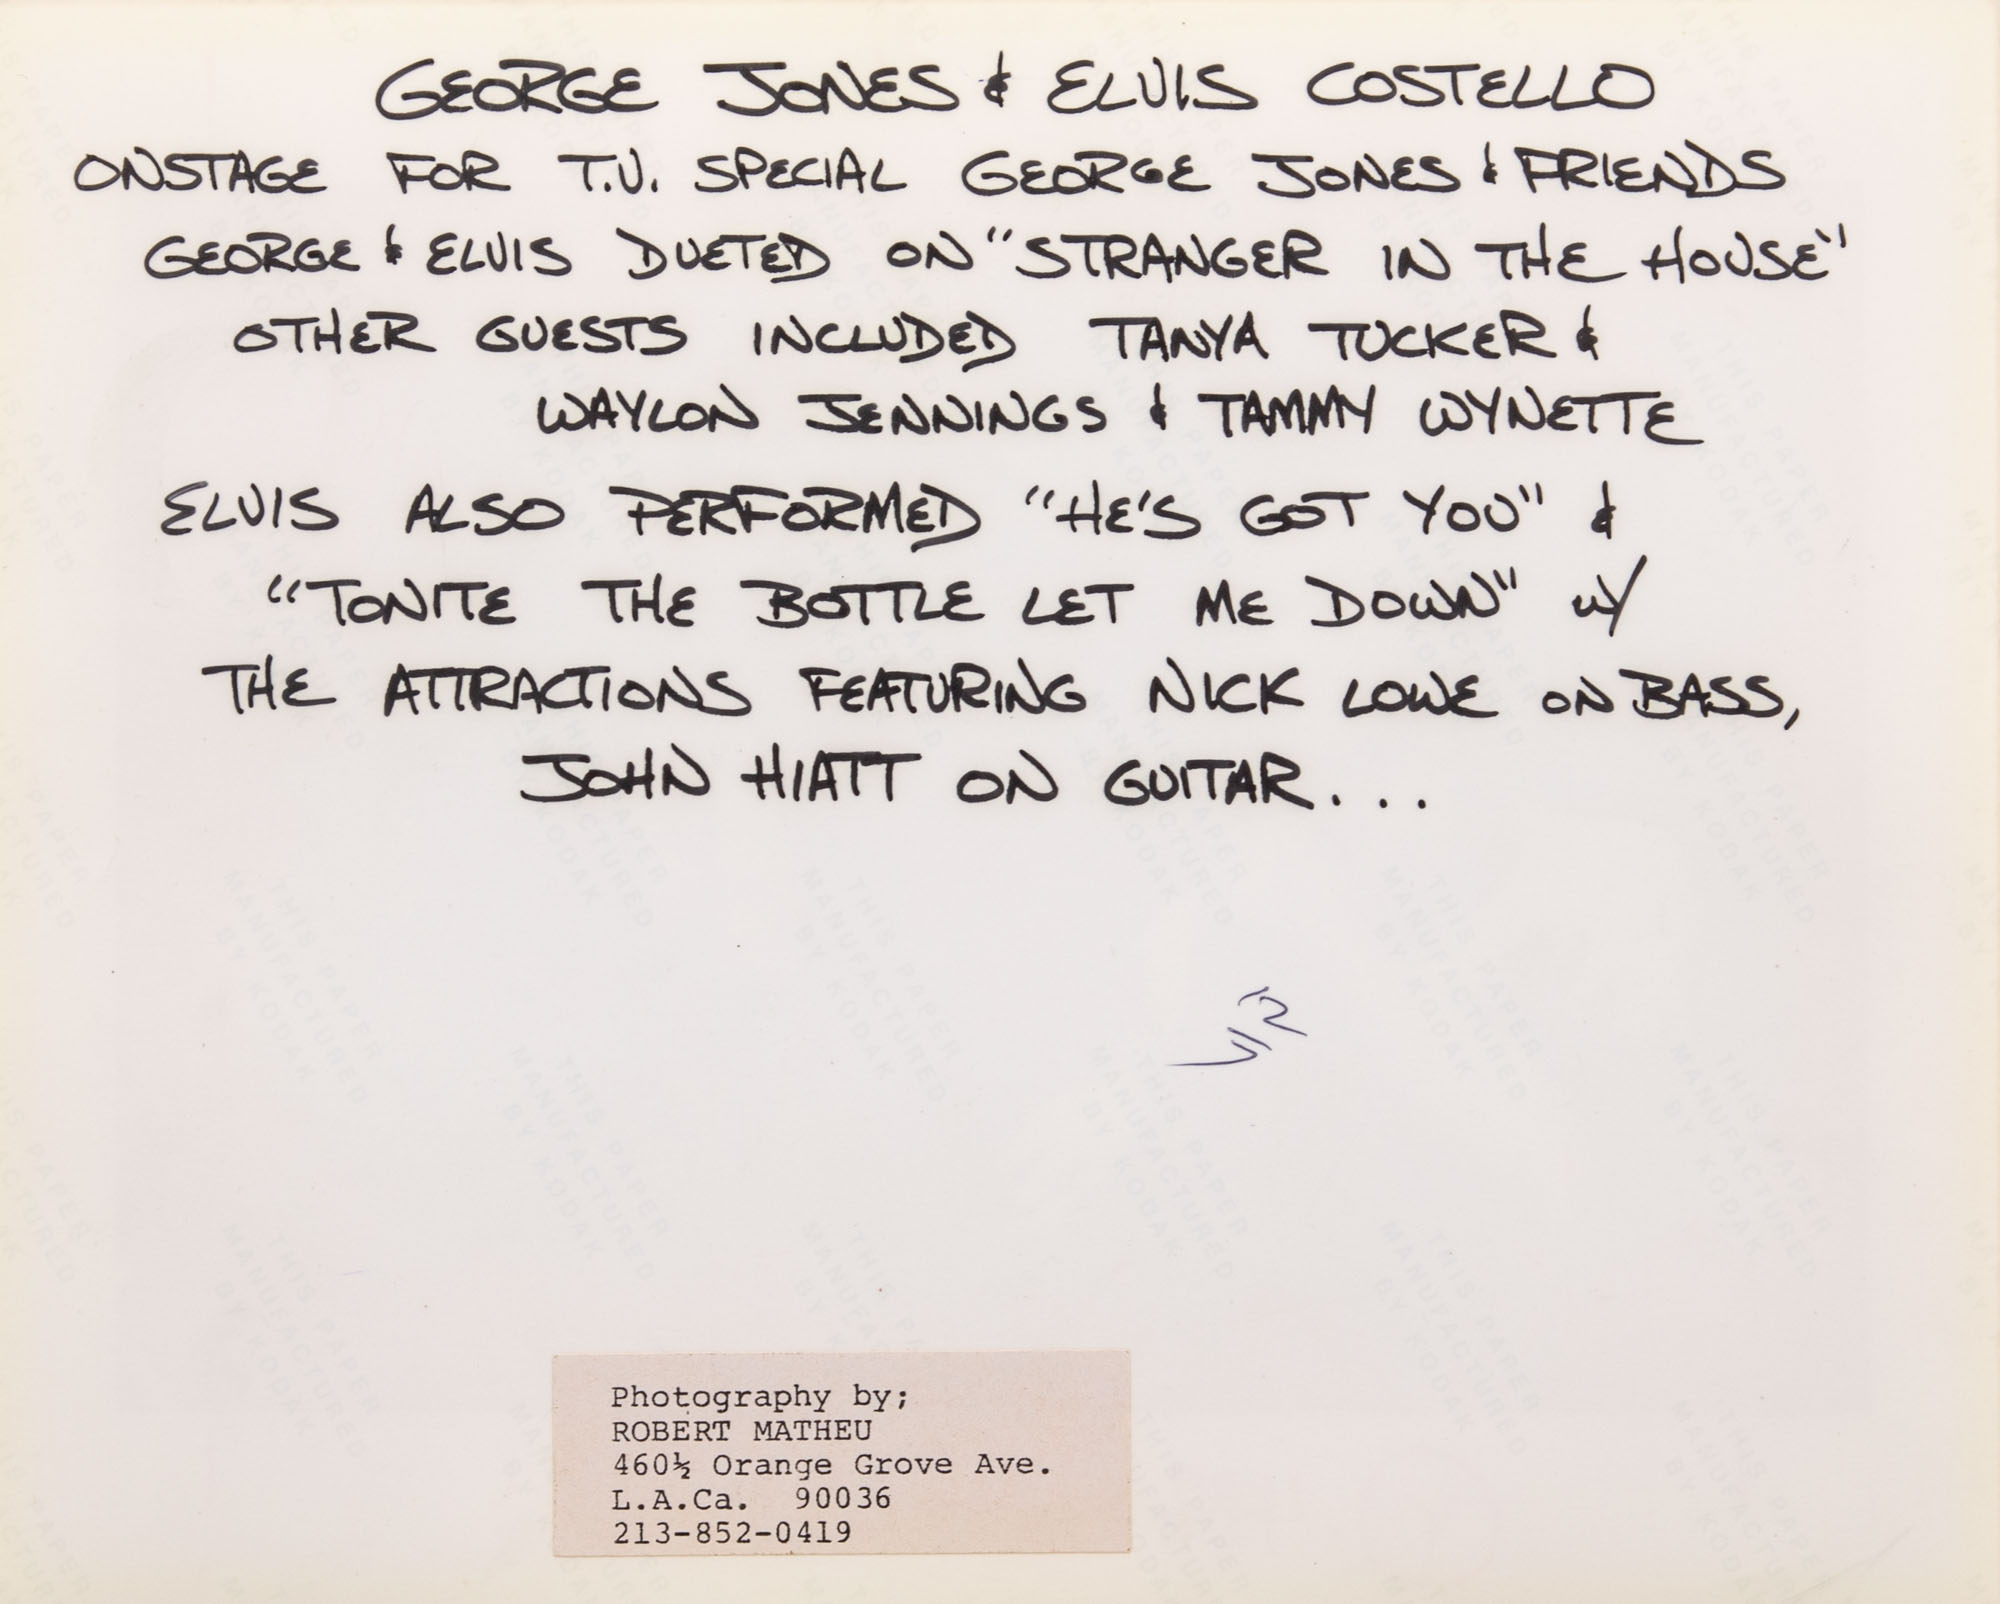 GEORGE JONES & ELVIS COSTELLO
ONSTAGE FOR T.V. SPECIAL GEORGE JONES & FRIENDS
GEORGE & ELVIS DUETED ON "STRANGER IN THE HOUSE"
OTHER GUESTS INCLUDED TANYA TUCKER &
WAYLON JENNINGS & TAMMY WYNETTE
ELVIS ALSO PERFORMED "HE'S GOT YOU" &
"TONITE THE BOTTLE LET ME DOWN" W/
THE ATTRACTIONS FEATURING NICK LOWE ON BASS,
JOHN HIATT ON GUITAR...
Photography by;
ROBERT MATHEU
460½ Orange Grove Ave.
L.A.Ca. 90036
213-852-0419
THIS PAPER
MANUFACTURED
BY KODAK